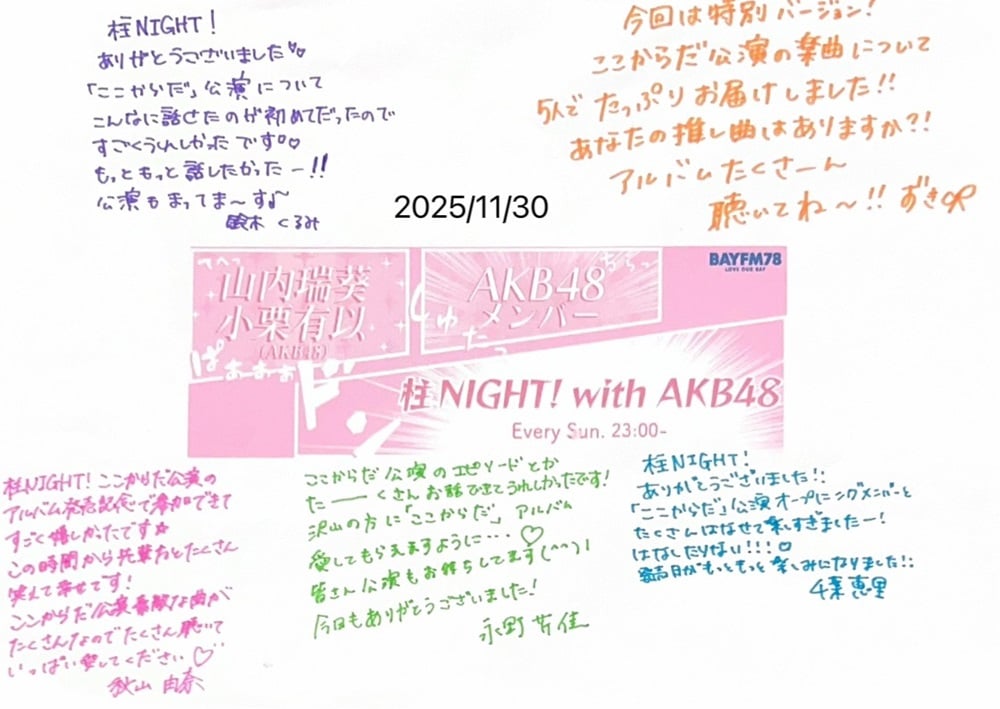 柱NIGHT!
ありがとうございました
「ここからだ」公演について
こんなに話せたのが初めてだったので
すごくうれしかったです♡
もっともっと話したかったー!!
公演もまってまーす♪
鈴木くるみ
今回は特別バージョン!
ここからだ公演の楽曲について
5人でたっぷりお届けしました!!
あなたの推し曲はありますか?!
アルバムたくさーん
聴いてね〜!! ずき
2025/11/30
山内瑞葵
小栗有以
(AKB48)
ぱぁぁぁぁ
AKB48
メンバー
BAYFM78
LOVE OUR BAY
柱NIGHT! with AKB48
Every Sun. 23:00-
柱NIGHT! ここからだ公演の
アルバム発売記念で参加できて
すごく嬉しかったです☆
この時間から先輩方とたくさん
笑えて幸せです!
ここからだ公演素敵な曲が
たくさんなのでたくさん聴いて
いっぱい愛してください♡
秋山由奈
ここからだ公演のエピソードとか
たーーくさんお話できてうれしかったです!
沢山の方に「ここからだ」アルバム
愛してもらえますように…♡
皆さん公演もお待ちしてます(^^)!
今日もありがとうございました!
永野芹佳
柱NIGHT!
ありがとうございました!!
「ここからだ」公演オープニングメンバーと
たくさんはなせて楽しすぎましたー!
はなしたりない!!!♡
発売日がもっともっと楽しみになりました!!
千葉恵里